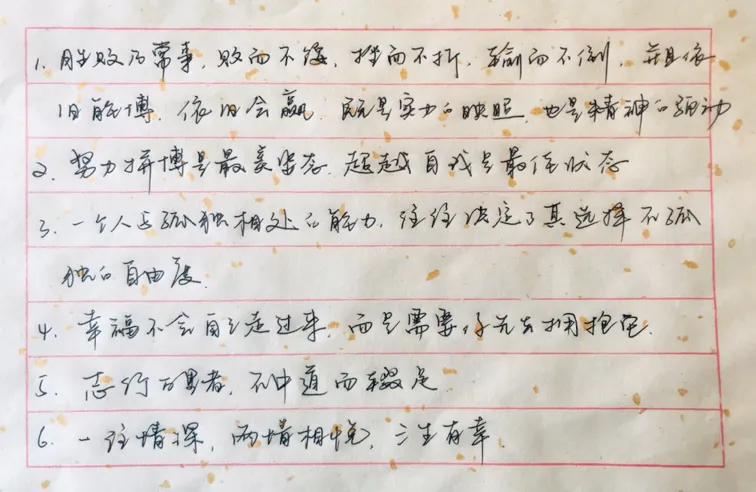 1. 胜败乃常事，败而不馁，挫而不折，输而不倒，并且依
旧能搏，依旧会赢，既是实力的映照，也是精神的驱动
2、努力拼博是最美姿态，超越自我是最佳状态
3、一个人与孤独相处的能力，往往决定了其选择不孤
独的自由度。
4、幸福不会自己走过来，而是需要你先去拥抱它.
5、志行万里者，不中道而辍足.
6、一往情深，两情相悦，三生有幸.